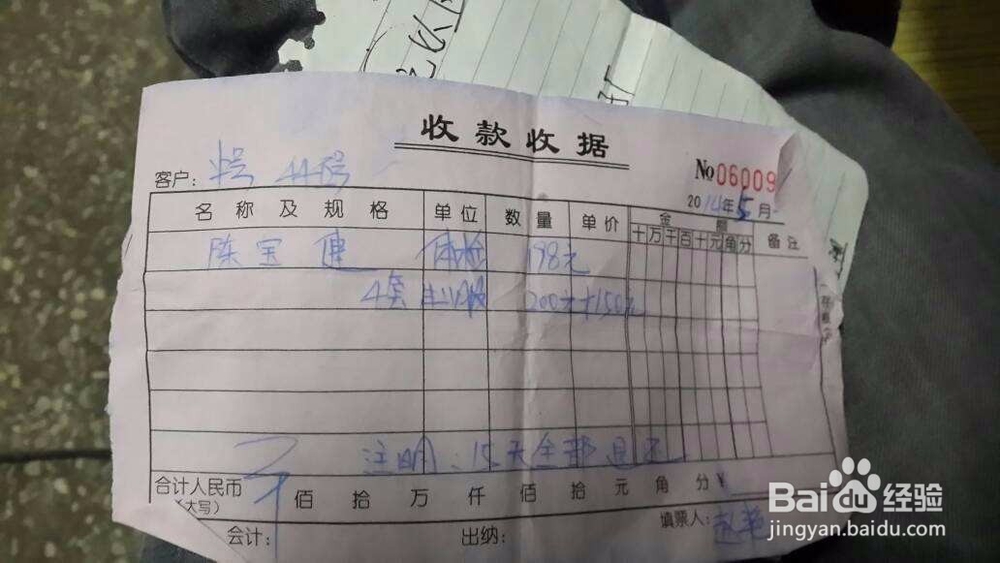 收款收据
No 06009
客户: 44号
2014年5月
名称及规格 单位 数量 单价 金额 备注
十万千百十元角分
陈宝健 体检 198元
4套 200元+150元
注明:15天全部退还
合计人民币(大写) 佰 拾 万 仟 佰 拾 元 角 分 ¥
会计: 出纳: 填票人:
Baidu经验
jingyan.baidu.com